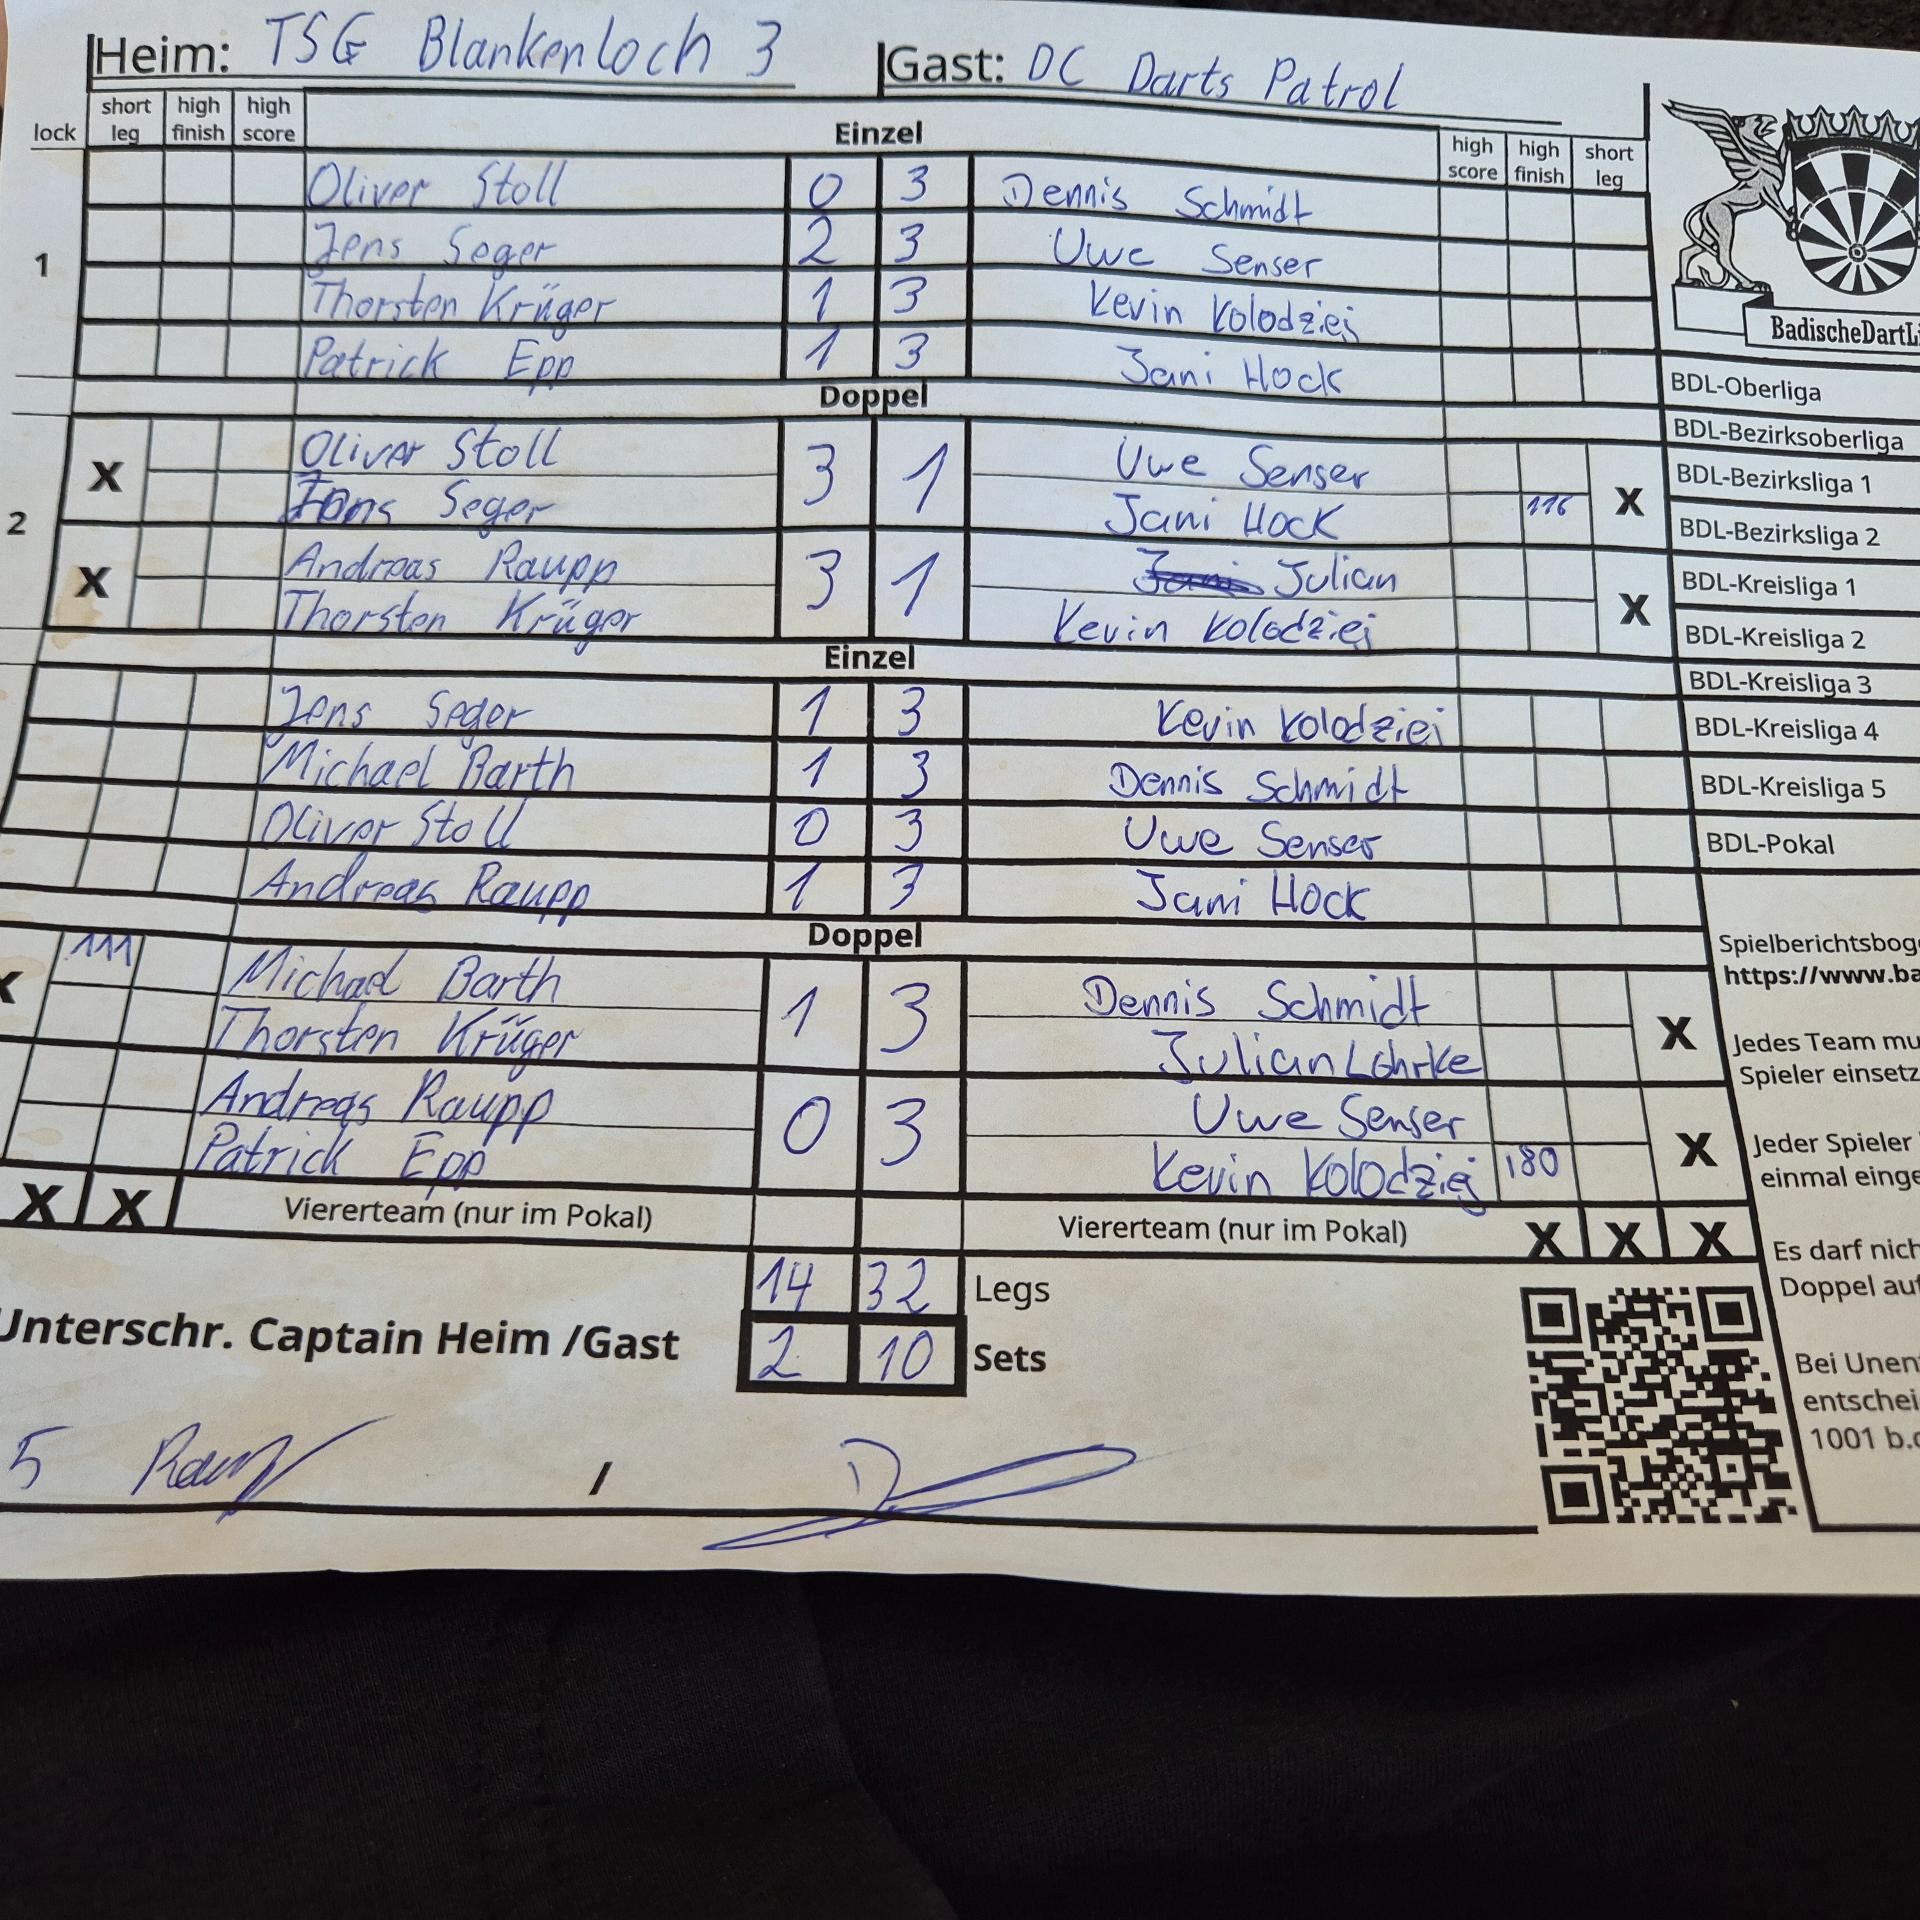 Heim: TSG Blankenloch 3 Gast: DC Darts Patrol
lock short leg high finish high score Einzel high score high finish short leg
1
Oliver Stoll 0 3 Dennis Schmidt
Jens Seger 2 3 Uwe Senser
Thorsten Krüger 1 3 Kevin Kolodziej
Patrick Epp 1 3 Jani Hock
BadischeDartLi
Doppel
2
X Oliver Stoll 3 1 Uwe Senser X
Jens Seger Jani Hock 116
X Andreas Raupp 3 1 Julian X
Thorsten Krüger Kevin Kolodziej
Einzel
Jens Seger 1 3 Kevin Kolodziej
Michael Barth 1 3 Dennis Schmidt
Oliver Stoll 0 3 Uwe Senser
Andreas Raupp 1 3 Jani Hock
Doppel
X 111 Michael Barth 1 3 Dennis Schmidt X
Thorsten Krüger Julian Lohrke
Andreas Raupp 0 3 Uwe Senser X
Patrick Epp Kevin Kolodziej 180
X X Viererteam (nur im Pokal) Viererteam (nur im Pokal) X X X
14 32 Legs
Unterschr. Captain Heim /Gast 2 10 Sets
5 /
BDL-Oberliga
BDL-Bezirksoberliga
BDL-Bezirksliga 1
BDL-Bezirksliga 2
BDL-Kreisliga 1
BDL-Kreisliga 2
BDL-Kreisliga 3
BDL-Kreisliga 4
BDL-Kreisliga 5
BDL-Pokal
Spielberichtsboge
https://www.ba
Jedes Team mu
Spieler einsetz
Jeder Spieler
einmal einge
Es darf nich
Doppel auf
Bei Unent
entschei
1001 b.o